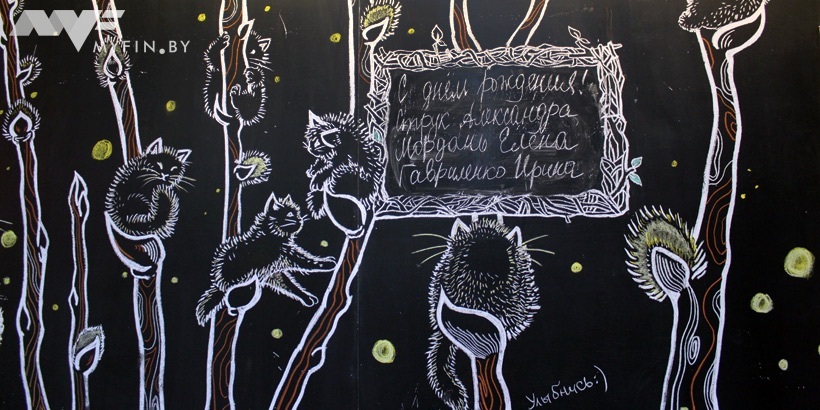 MYFIN.BY
С днём рождения!
Струк Александра
Мордань Елена
Гавриленко Ирина
Улыбнись:)